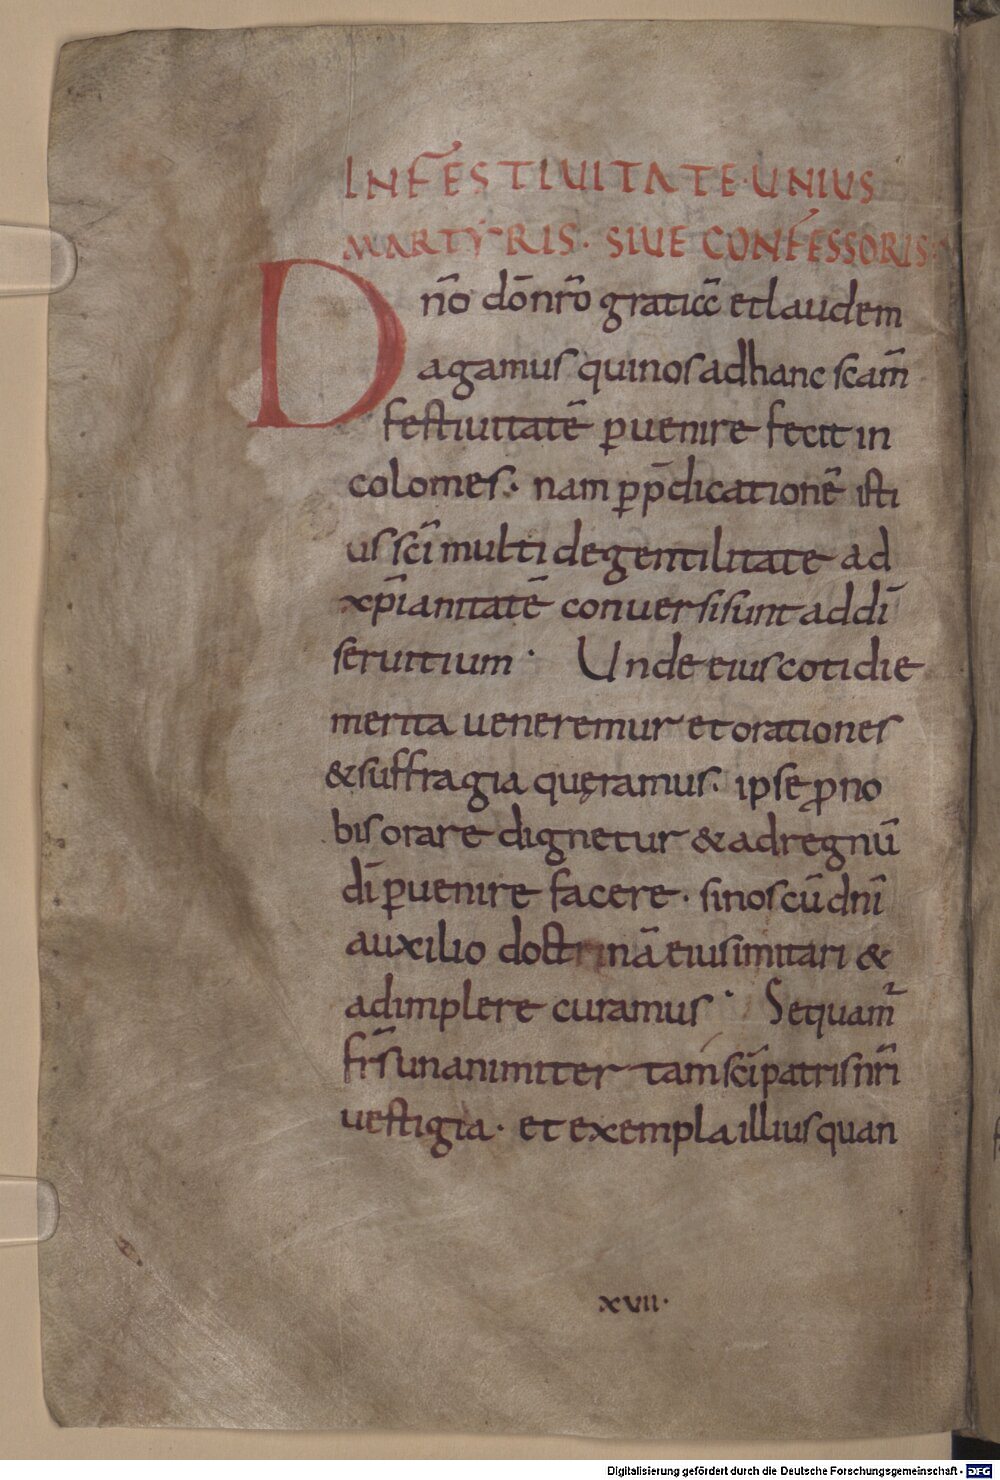 INFESTIUITATE·UNIUS
MARTYRIS· SIUE CONFESSORIS·
D
nō dō nrō gratias et laudem
agamus qui nos ad hanc scam̄
festiuitatē puenire fecit in
colomes· nam p p̄dicationē isti
us sc̄i multi de gentilitate ad
xp̄ianitatē conuersi sunt ad dī
seruitium· Unde eius cotidie
merita ueneremur et orationes
& suffragia quęramus· ipse pro no
bis orare dignetur & ad regnū
dī puenire facere· si nos cū dnī
auxilio doctrinā eius imitari &
adimplere curamus· Sequam̄
fr̄s unanimiter tam sc̄i patris nr̄i
uestigia· et exempla illius quan
xvii·
Digitalisierung gefördert durch die Deutsche Forschungsgemeinschaft - DFG